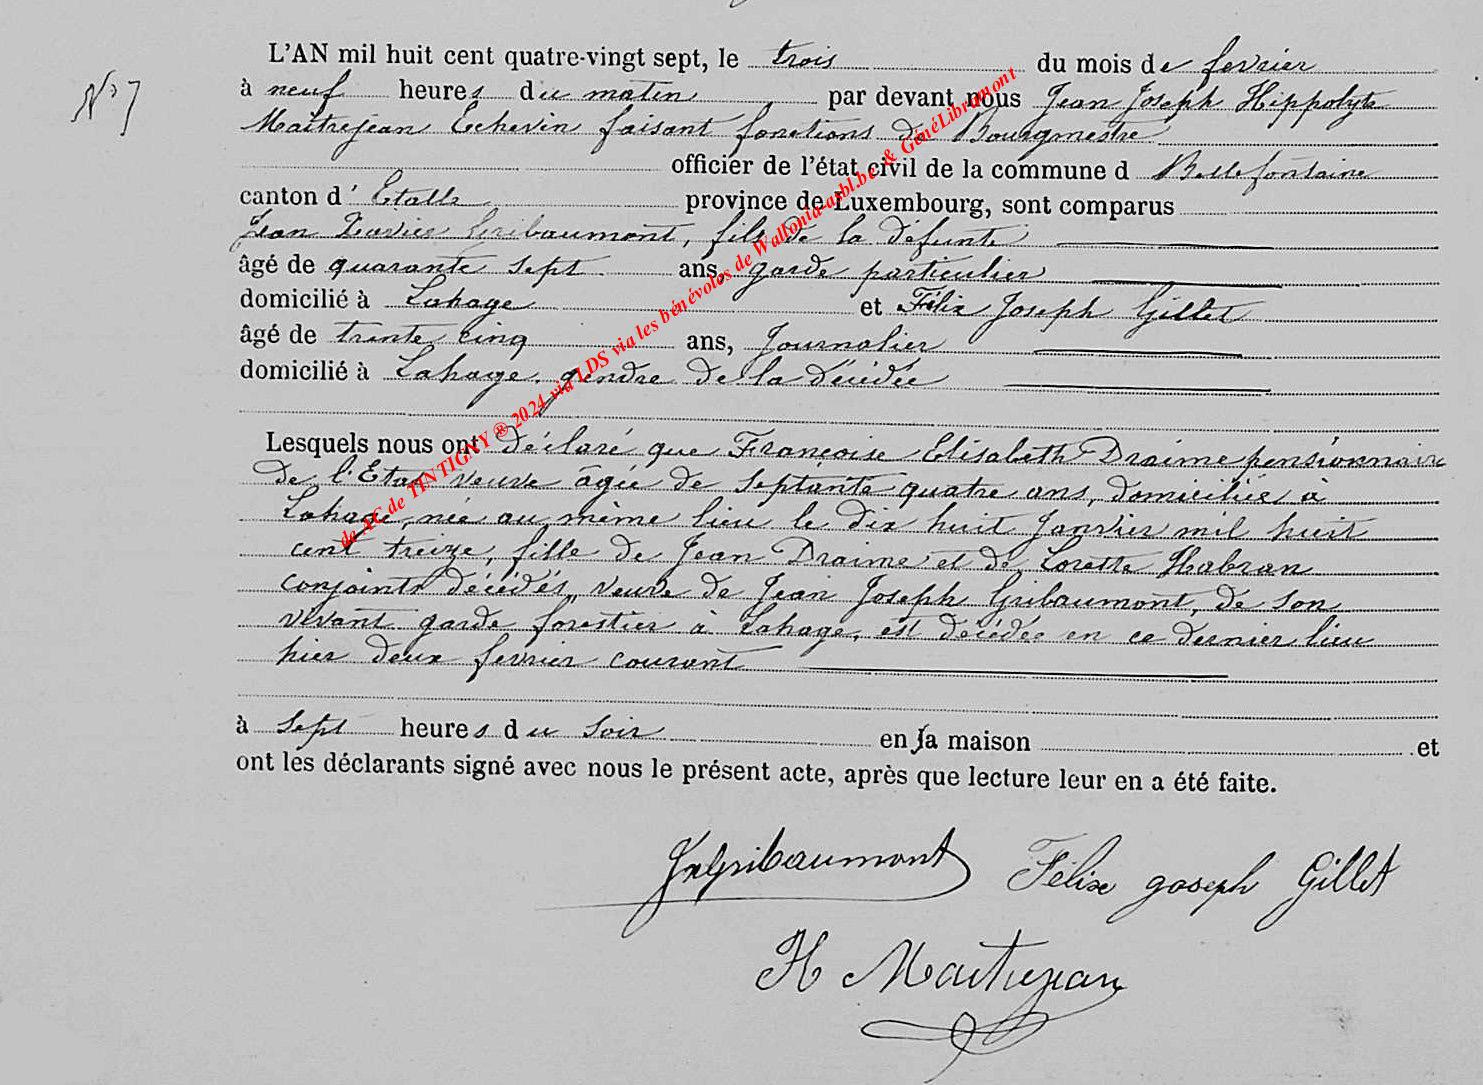 N° 7
L'AN mil huit cent quatre-vingt sept, le trois du mois de fevrier
à neuf heures du matin par devant nous Jean Joseph Hippolyte
Maitrejean Echevin faisant fonctions de Bourgmestre
officier de l'état civil de la commune d Bellefontaine
canton d' Etalle province de Luxembourg, sont comparus
Jean Xavier Gribaumont, fils de la défunte
âgé de quarante sept ans, garde particulier
domicilié à Lahage et Félix Joseph Gillet
âgé de trente cinq ans, Journalier
domicilié à Lahage, gendre de la Décédée
Lesquels nous ont déclaré que Françoise Elisabeth Draime pensionnaire
de l'Etat veuve âgée de septante quatre ans, domiciliée à
Lahage, née au même lieu le dix huit Janvier mil huit
cent treize, fille de Jean Draime et de Lorette Habran
conjoints décédés, veuve de Jean Joseph Gribaumont, de son
vivant garde forestier à Lahage, est décédée en ce dernier lieu
hier deux fevrier courant
à sept heures du soir en sa maison et
ont les déclarants signé avec nous le présent acte, après que lecture leur en a été faite.
JxGribaumont Félix joseph Gillet
H Maitrejean
de AC de TINTIGNY ® 2024 via LDS via les bénévoles de Wallonia-asbl.be & GénéLibramont